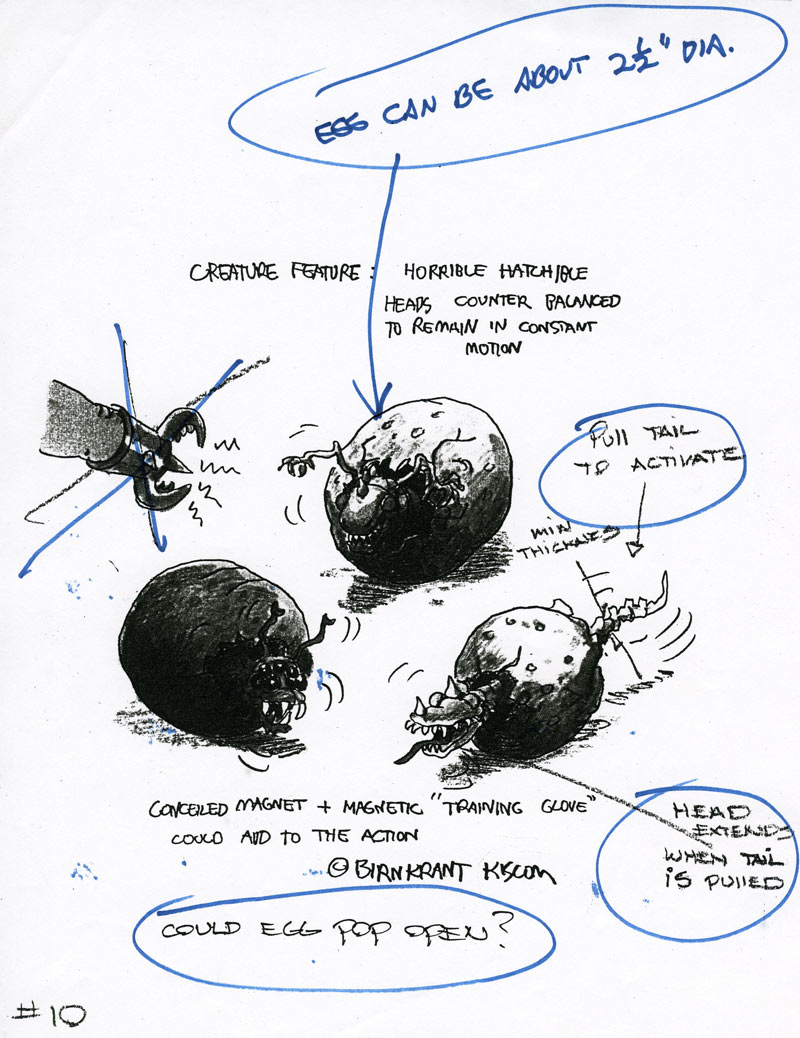 EGG CAN BE ABOUT 2½" DIA.
CREATURE FEATURE: HORRIBLE HATCHIBLE
HEADS COUNTER BALANCED
TO REMAIN IN CONSTANT
MOTION
PULL TAIL
TO ACTIVATE
MIN
THICKNESS
CONCEILED MAGNET + MAGNETIC "TRAINING GLOVE"
COULD ADD TO THE ACTION
© BIRNKRANT KISCOM
HEAD
EXTENDS
WHEN TAIL
IS PULLED
COULD EGG POP OPEN?
#10